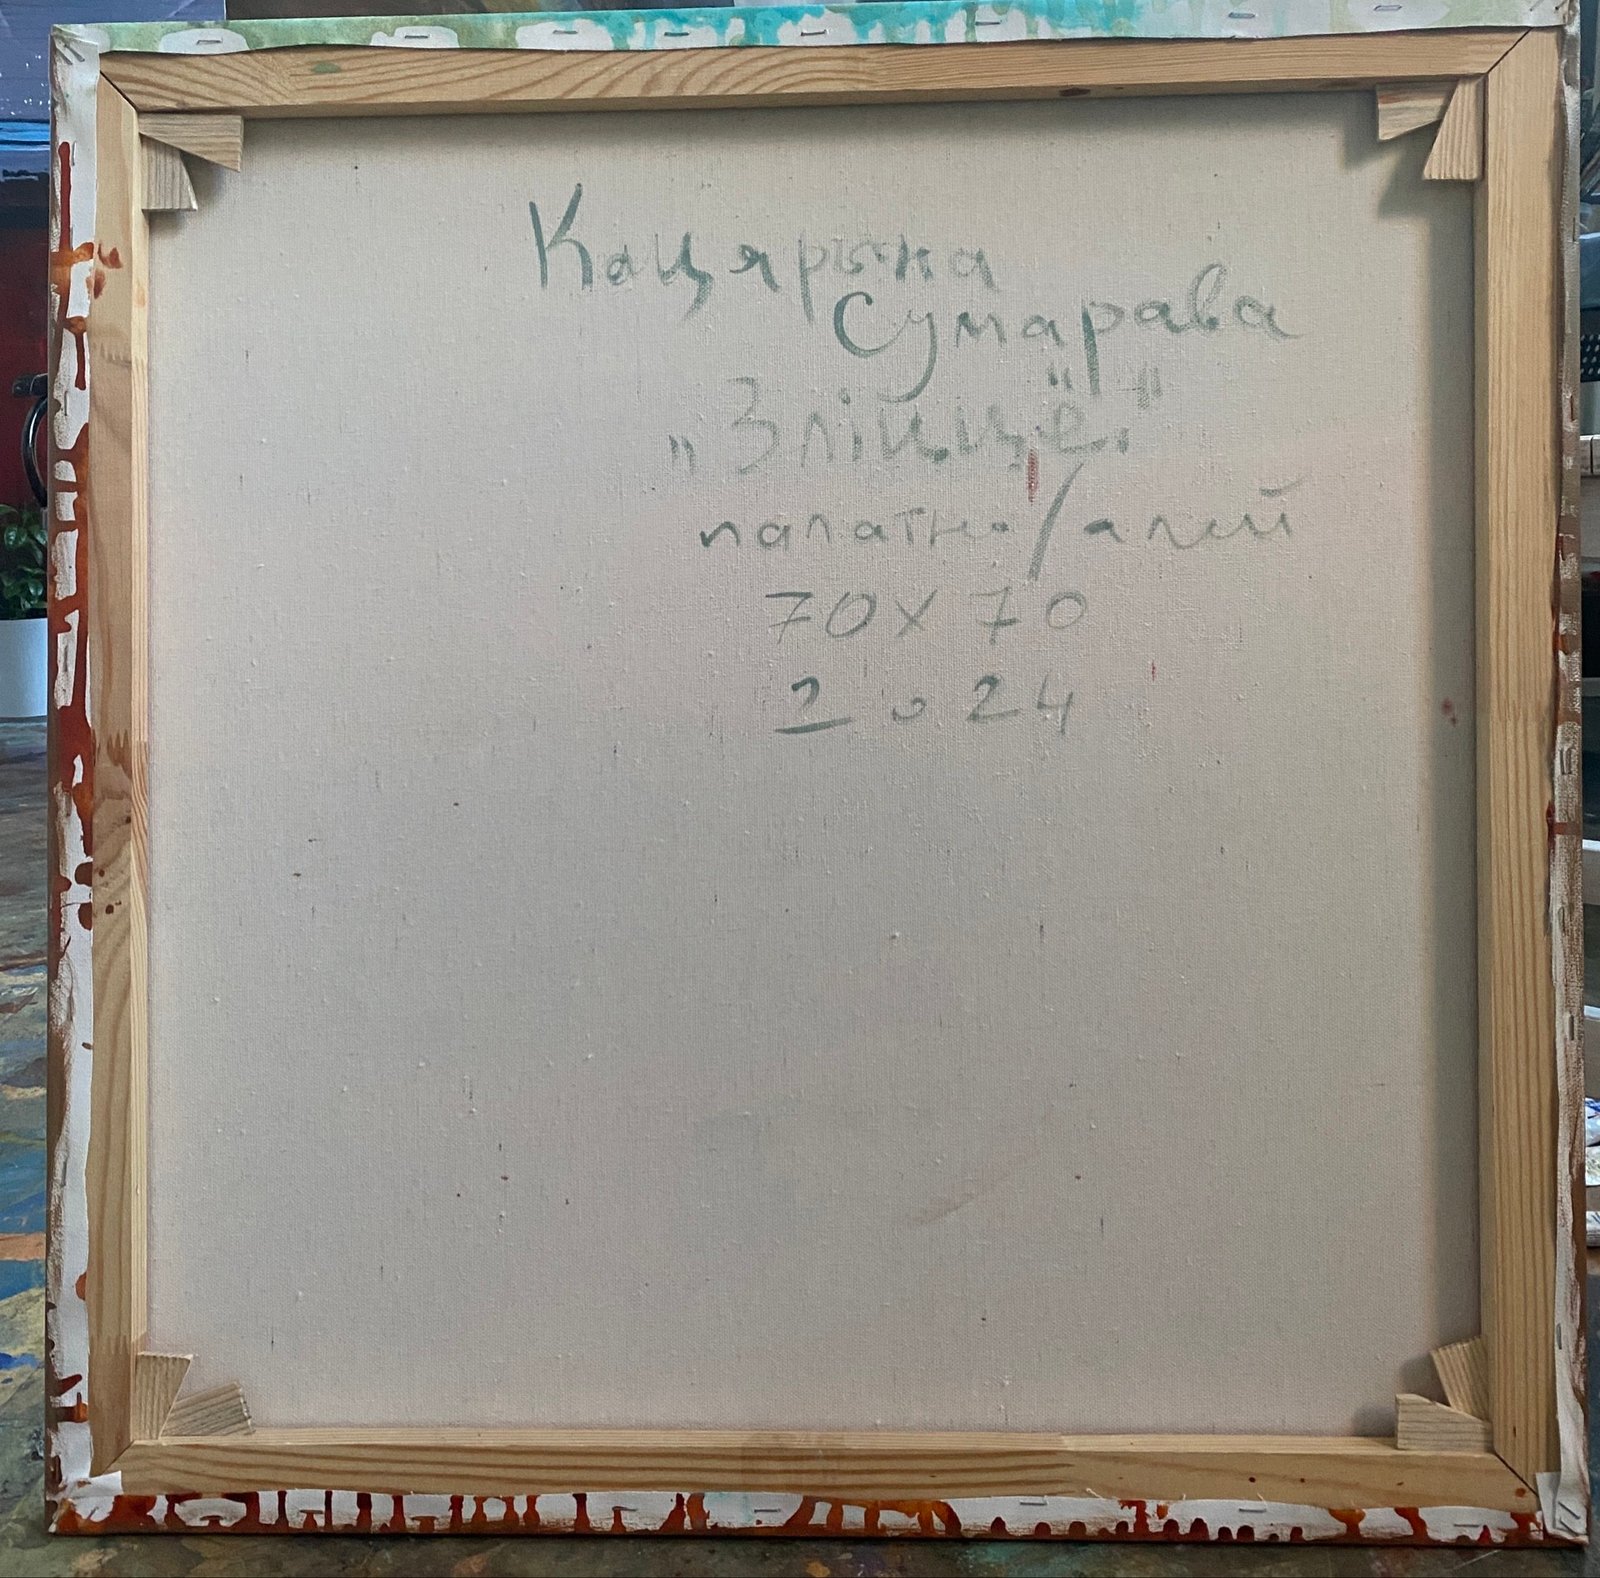 Кацярына
Сумарава
„Зліццё."
палатно/алей
70х70
2024